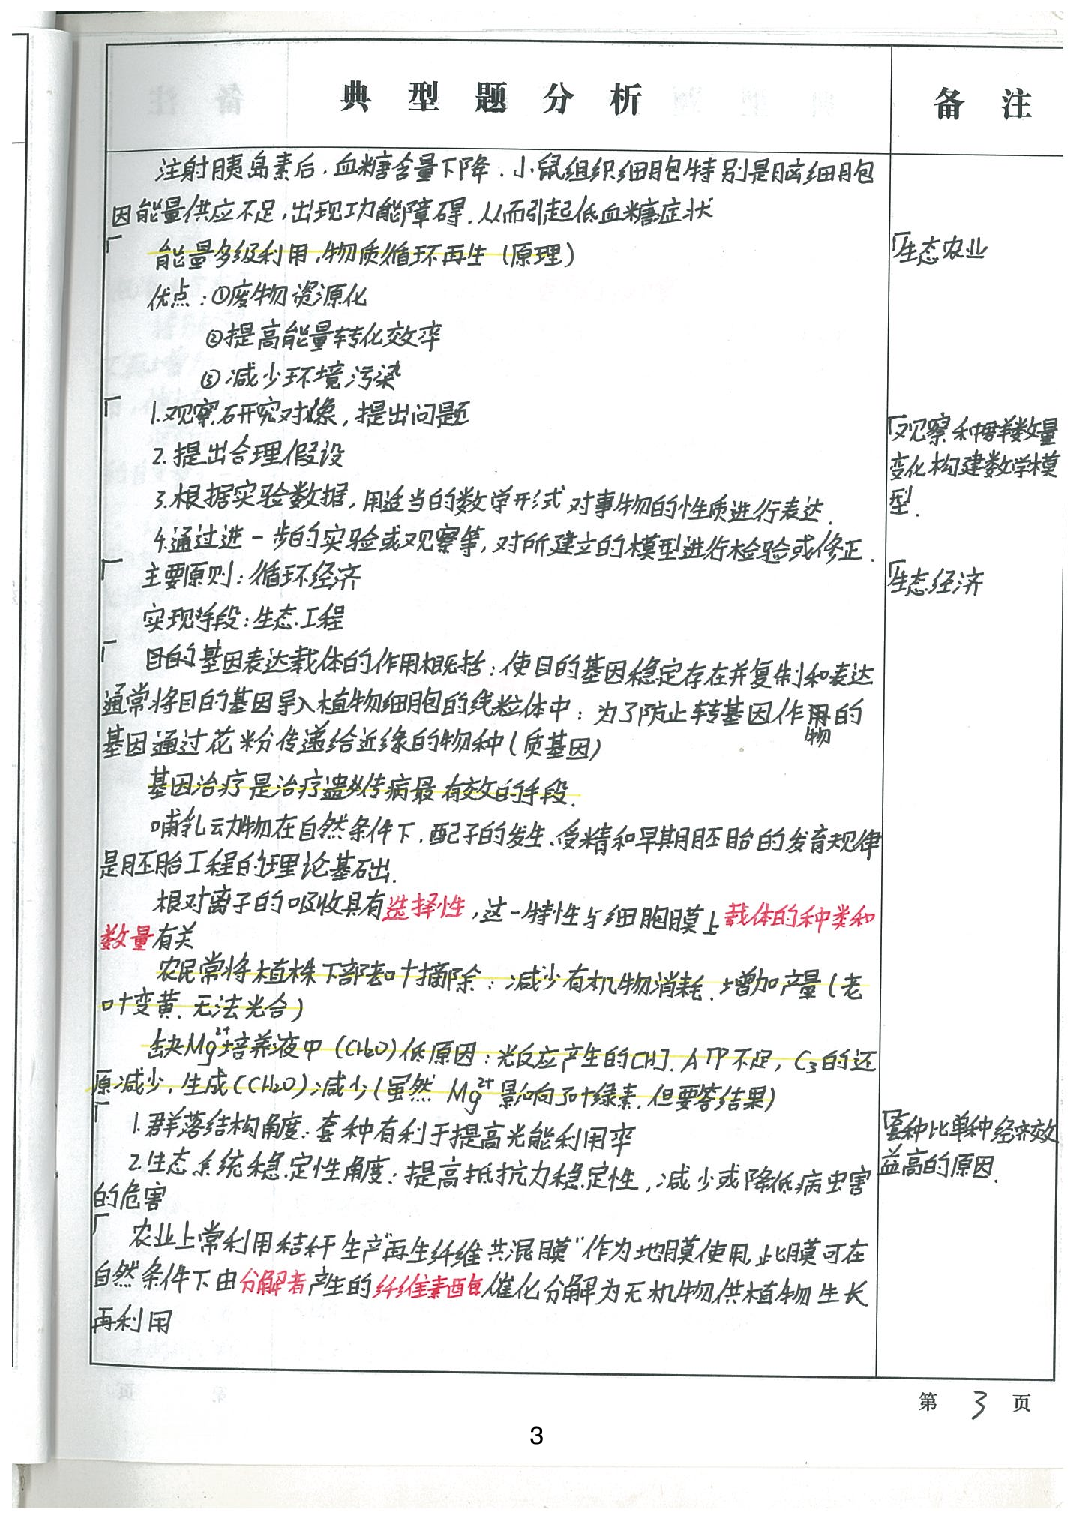 典型题分析 备注
注射胰岛素后，血糖含量下降．小鼠组织细胞特别是脑细胞
因能量供应不足，出现功能障碍．从而引起低血糖症状
能量多级利用，物质循环再生（原理）
「生态农业
优点：①废物资源化
②提高能量转化效率
③减少环境污染
1.观察研究对象，提出问题
「观察种群数量
2.提出合理假设
变化构建数学模
3.根据实验数据，用适当的数学形式对事物的性质进行表达．
型．
4.通过进一步的实验或观察等，对所建立的模型进行检验或修正．
主要原则：循环经济
「生态经济
实现手段：生态工程
目的基因表达载体的作用概括：使目的基因稳定存在并复制和表达
通常将目的基因导入植物细胞的线粒体中：为了防止转基因作物的
基因通过花粉传递给近缘的物种（质基因）
基因治疗是治疗遗传病最有效的手段．
哺乳动物在自然条件下，配子的发生、受精和早期胚胎的发育规律
是胚胎工程的理论基础．
根对离子的吸收具有选择性，这一特性与细胞膜上载体的种类和
数量有关
农民常将植株下部老叶摘除：减少有机物消耗．增加产量（老
叶变黄．无法光合）
缺Mg²⁺培养液中（CH₂O）低原因：光反应产生的[H]．ATP不足，C₃的还
原减少．生成（CH₂O）减少（虽然Mg²⁺影响了叶绿素．但要答结果）
1.群落结构角度：套种有利于提高光能利用率
「套种比单种经济效
2.生态系统稳定性角度：提高抵抗力稳定性，减少或降低病虫害
益高的原因．
的危害
农业上常利用秸秆生产“再生纤维共混膜”作为地膜使用，此膜可在
自然条件下由分解者产生的纤维素酶催化分解为无机物供植物生长
再利用
第 3 页
3